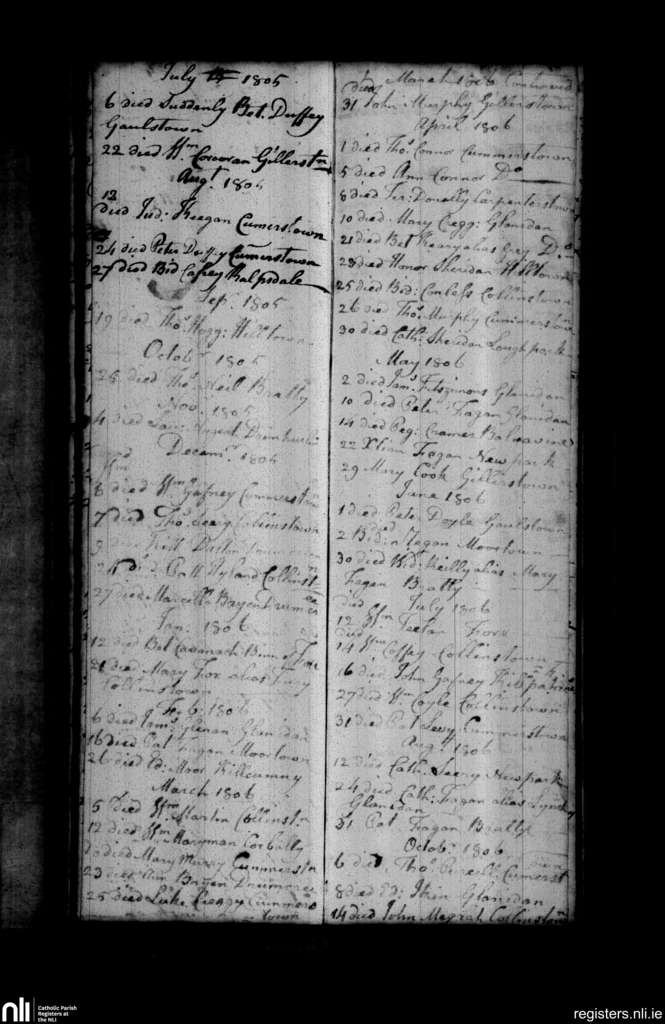 July 1805
6 died Suddenly Bet. Duffey
Gaulstown
22 died Wm Corcoran Gillerstn
Augt. 1805
12
died Jud: Keegan Cumerstown
24 died Peter Duffy Cumerstown
27 died Bid Cafrey Ralpsdale
Sepr. 1805
19 died Thos. Hogg: Hilltown
Octobr 1805
25 died Thos. Neill Bratty
Nov. 1805
4 died Nugent
Decemr. 1805
Wm
6 died Wm Gafney Cumerstn
7 died Thos. Geary Collinstown
died
24 died Patt Hyland Collinstn
27 died Marcella Bryen
Jan. 1806
12 died Bet Cavanach
21 died Mary Fox alias
Collinstown
Feb. 1806
6 died Jams. Glenan Glanidan
16 died Pat Fagan Moortown
26 died Ed: Killcumny
March 1806
5 Died Wm Martin Collinstn
12 died Wm Maryman Corbilly
died Mary Murry Cummerstn
23 died Ann Bryen Drumcree
25 died Luke Cummers
town
March 1806 Continued
died
31 John Murphy Gillerstown
April 1806
1 died Thos. Connor Cummerstown
5 died Ann Connor Do
8 died Ter: Donolly Carpenterstown
10 died Mary Clegg: Glanidan
21 died Bet Keary alias Do
23 died Honor Sheridan Hilltown
25 died Bed: Conless Collinstown
26 died Thos. Murphy Cumerstown
30 died Cath: Sheridan Loughpark
May 1806
2 died Jams. Fitszimons Glanidan
10 died Peter Fagan Glanidan
14 died Peg: Cramer
22 Xtian Fagan Newpark
29 Mary Cook Gillerstown
June 1806
1 died Peter Doyle Gaulstown
died
2 Bidin Fagan Moortown
30 died Bid: Reilly alias Mary
Fagan Bratty
died July 1806
12 Wm Feelan Fore
died
14 Wm Coffey Collinstown
16 died John Gafney Kilpatrick
27 died Wm Coyle Collinstown
31 died Pat Levy Cummerstown
Aug. 1806
12 died Cath: Newpark
24 died Cath: Fagan alias
Glanidan
31 Pat Fagan Bratty
Octobr. 1806
6 died Thos. Cumerst
8 died Ed: Glanidan
14 died John Magrah Collinstown
nli
Catholic Parish
Registers at
the NLI
registers.nli.ie